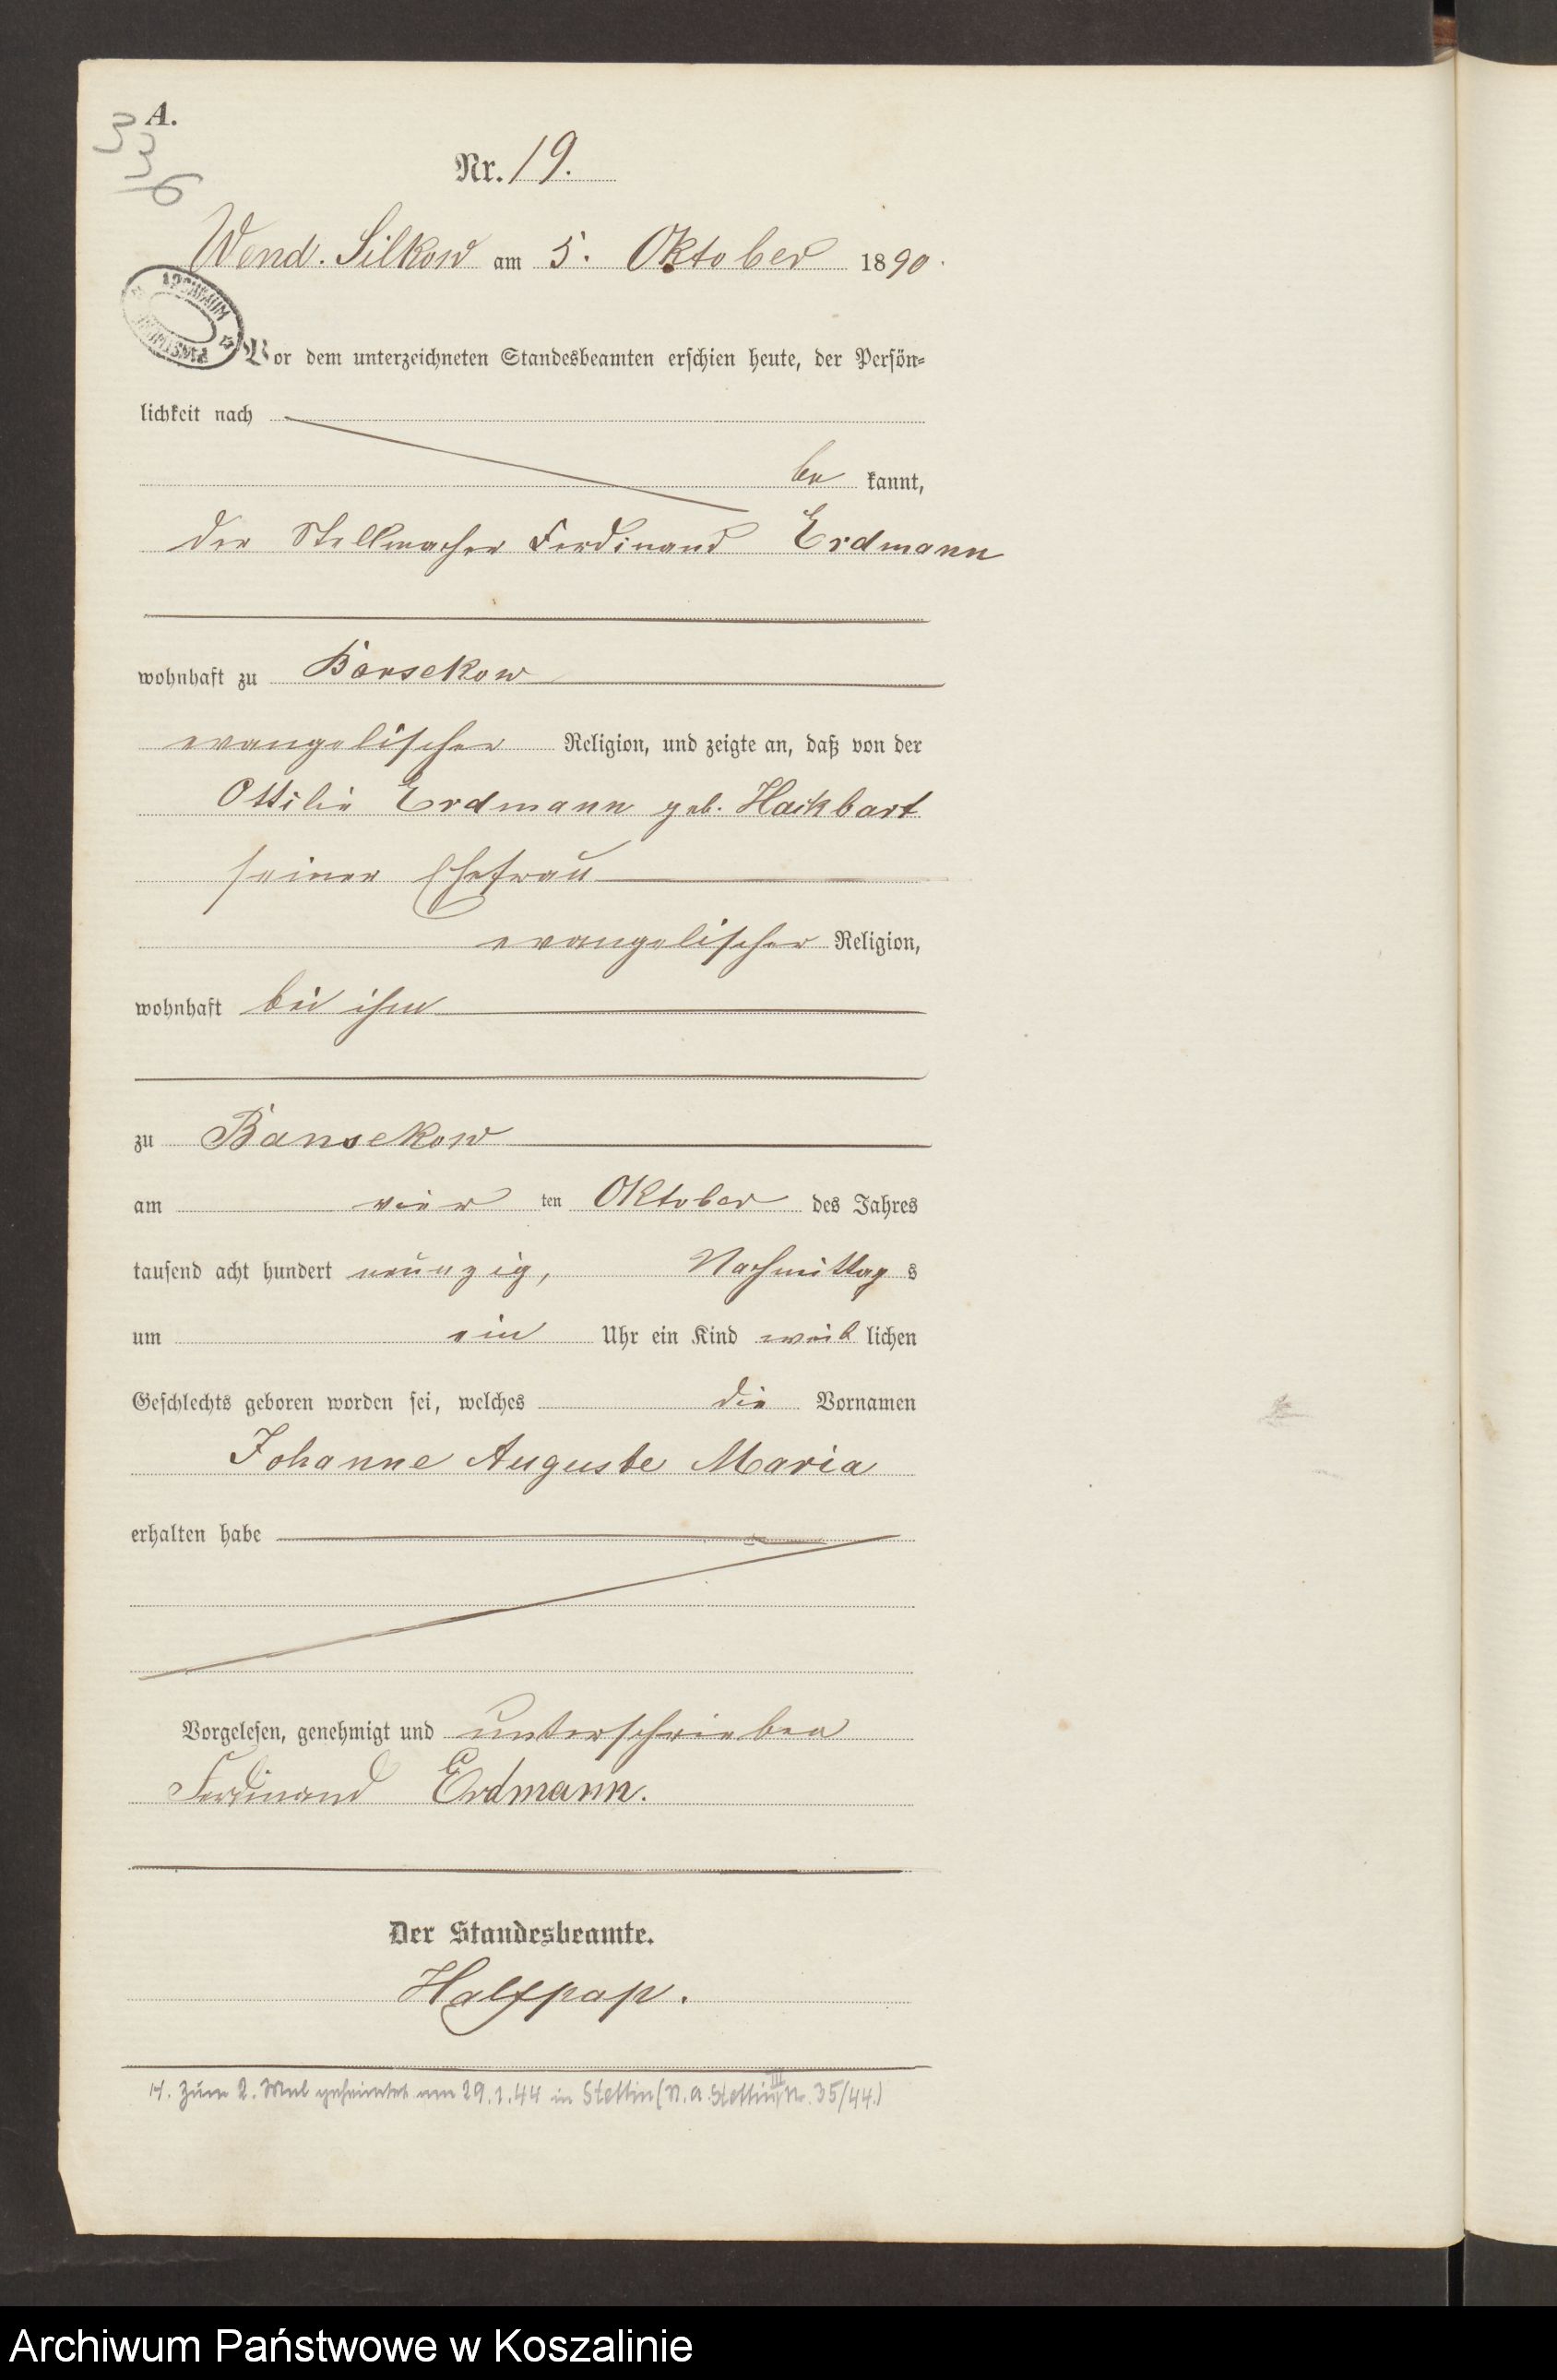 A.
336
Nr. 19.
Wend. Silkow am 5. Oktober 1890.
ARCHIWUM PAŃSTWOWE
Vor dem unterzeichneten Standesbeamten erschien heute, der Persön-
lichkeit nach
be kannt,
der Stellmacher Ferdinand Erdmann
wohnhaft zu Bansekow
evangelischer Religion, und zeigte an, daß von der
Ottilie Erdmann geb. Hackbart
seiner Ehefrau
evangelischer Religion,
wohnhaft bei ihm
zu Bansekow
am vier ten Oktober des Jahres
tausend acht hundert neunzig, Nachmittag s
um ein Uhr ein Kind weib lichen
Geschlechts geboren worden sei, welches die Vornamen
Johanne Auguste Maria
erhalten habe
Vorgelesen, genehmigt und unterschrieben
Ferdinand Erdmann.
Der Standesbeamte.
Halfpap.
H. zum 2. Mal geheiratet am 29.1.44 in Stettin (St. A. Stettin III Nr. 35/44.)
Archiwum Państwowe w Koszalinie